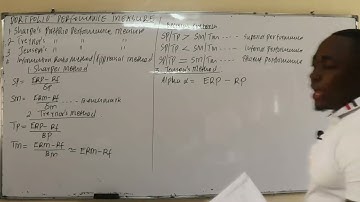 PORTFOLIO PERFORMANCE MEASURE
1 Sharpe's Portfolio Performance measure
2 Treynor's " " "
3 Jensen's " " "
4 Information Ratio method / Appraisal method
1 Sharpe's Method
SP = ERP - RF
SP
Sm = ERm - RF .... benchmark
Sm
2 Treynor's method
TP = ERP - RF
BP
Tm = ERm - RF = ERm - RF
Bm
SP|TP < Sm|Tm .... performance
SP|TP > Sm|Tm .... Superior performance
SP|TP = Sm|Tm .... performance
3 Jensen's Method
Alpha α = ERP - RP